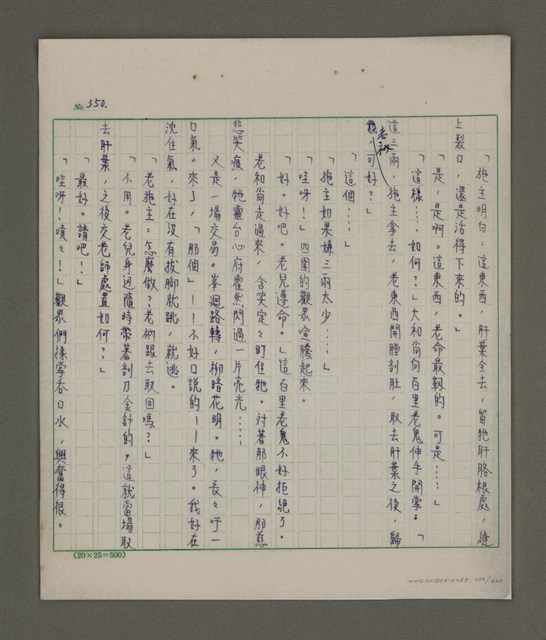 No. 350.
「施主明白：這東西，肝葉全去，留牠肝胳根處，縫
上裂口，還是活得下來的。」
「是，是啊。這東西，老命最韌的。可是……」
「這樣……如何？」大和尚向百里老鬼伸手開掌：「
這三兩，施主拿去，老東西開膛剖肚，取去肝葉之後，歸
老衲可好？」
「這個……」
「施主如果嫌三兩太少……」
「哇呀！」四圍的觀眾喧騰起來。
「好。好吧。老兒遵命。」這百里老鬼不好拒絕了。
老和尚走過來，含笑定定盯住牠。對著那眼神，那慈
悲笑痕，牠靈台心府霍然閃過一片亮光……
又是一場交易。峯迴路轉，柳暗花明。牠，長長吁一
口氣。來了，「那個」——不好口說的——來了。我好在
沈住氣，好在沒有拔腳就跳，就逃。
「老施主：怎麼做？老衲跟去取回嗎？」
「不用。老兒身邊隨時帶著剖刀金針的，這就當場取
去肝葉，之後交老師處置如何？」
「最好。請吧！」
「哇呀！嘖嘖！」觀眾們搓掌吞口水，興奮得很。
(20×25=500)